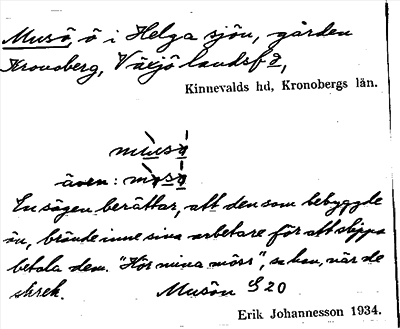 Musö, ö i Helga sjön, gården
Kronoberg, Växjö landsf2,
Kinnevalds hd, Kronobergs län.
även:
En sägen berättar, att den som bebyggde
ön, brände inne sina arbetare för att slippa
betala dem. "Hör mina möss", sa han, när de
skrek. Musön S 20
Erik Johannesson 1934.